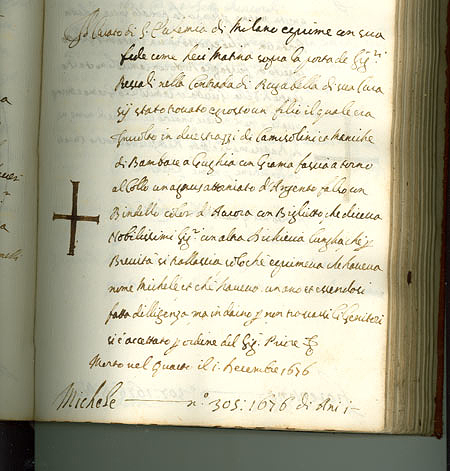 Curato di S. Eufemia di Milano esprime con sua
fede come heri Matina sopra la porta de Sig.ri
Rescali nella Contrada di Rugabella di sua Cura
sij stato trovato esposto un filio il quale era
Involto in due strazzi di Camisolini co maniche
di Bambace a Gughia con grama fascia a torno
al Collo un agnus attaniato d'Argento falso con
Bindello color d'Aurora con Biglietto che diceva
Nobilissimi Sig.ri con altra dichieria lungha che p
Brevità si tralascia solo che esprimeva che haveva
nome Michele et che haveva un anno et essendosi
fatta diligenza ma indarno p non trovarsi li Genitori
si è accettato p ordine del Sig. Priore
Morto nel Quarto il i. Decembre 1676
Michele n.o 305: 1676 di Anni i